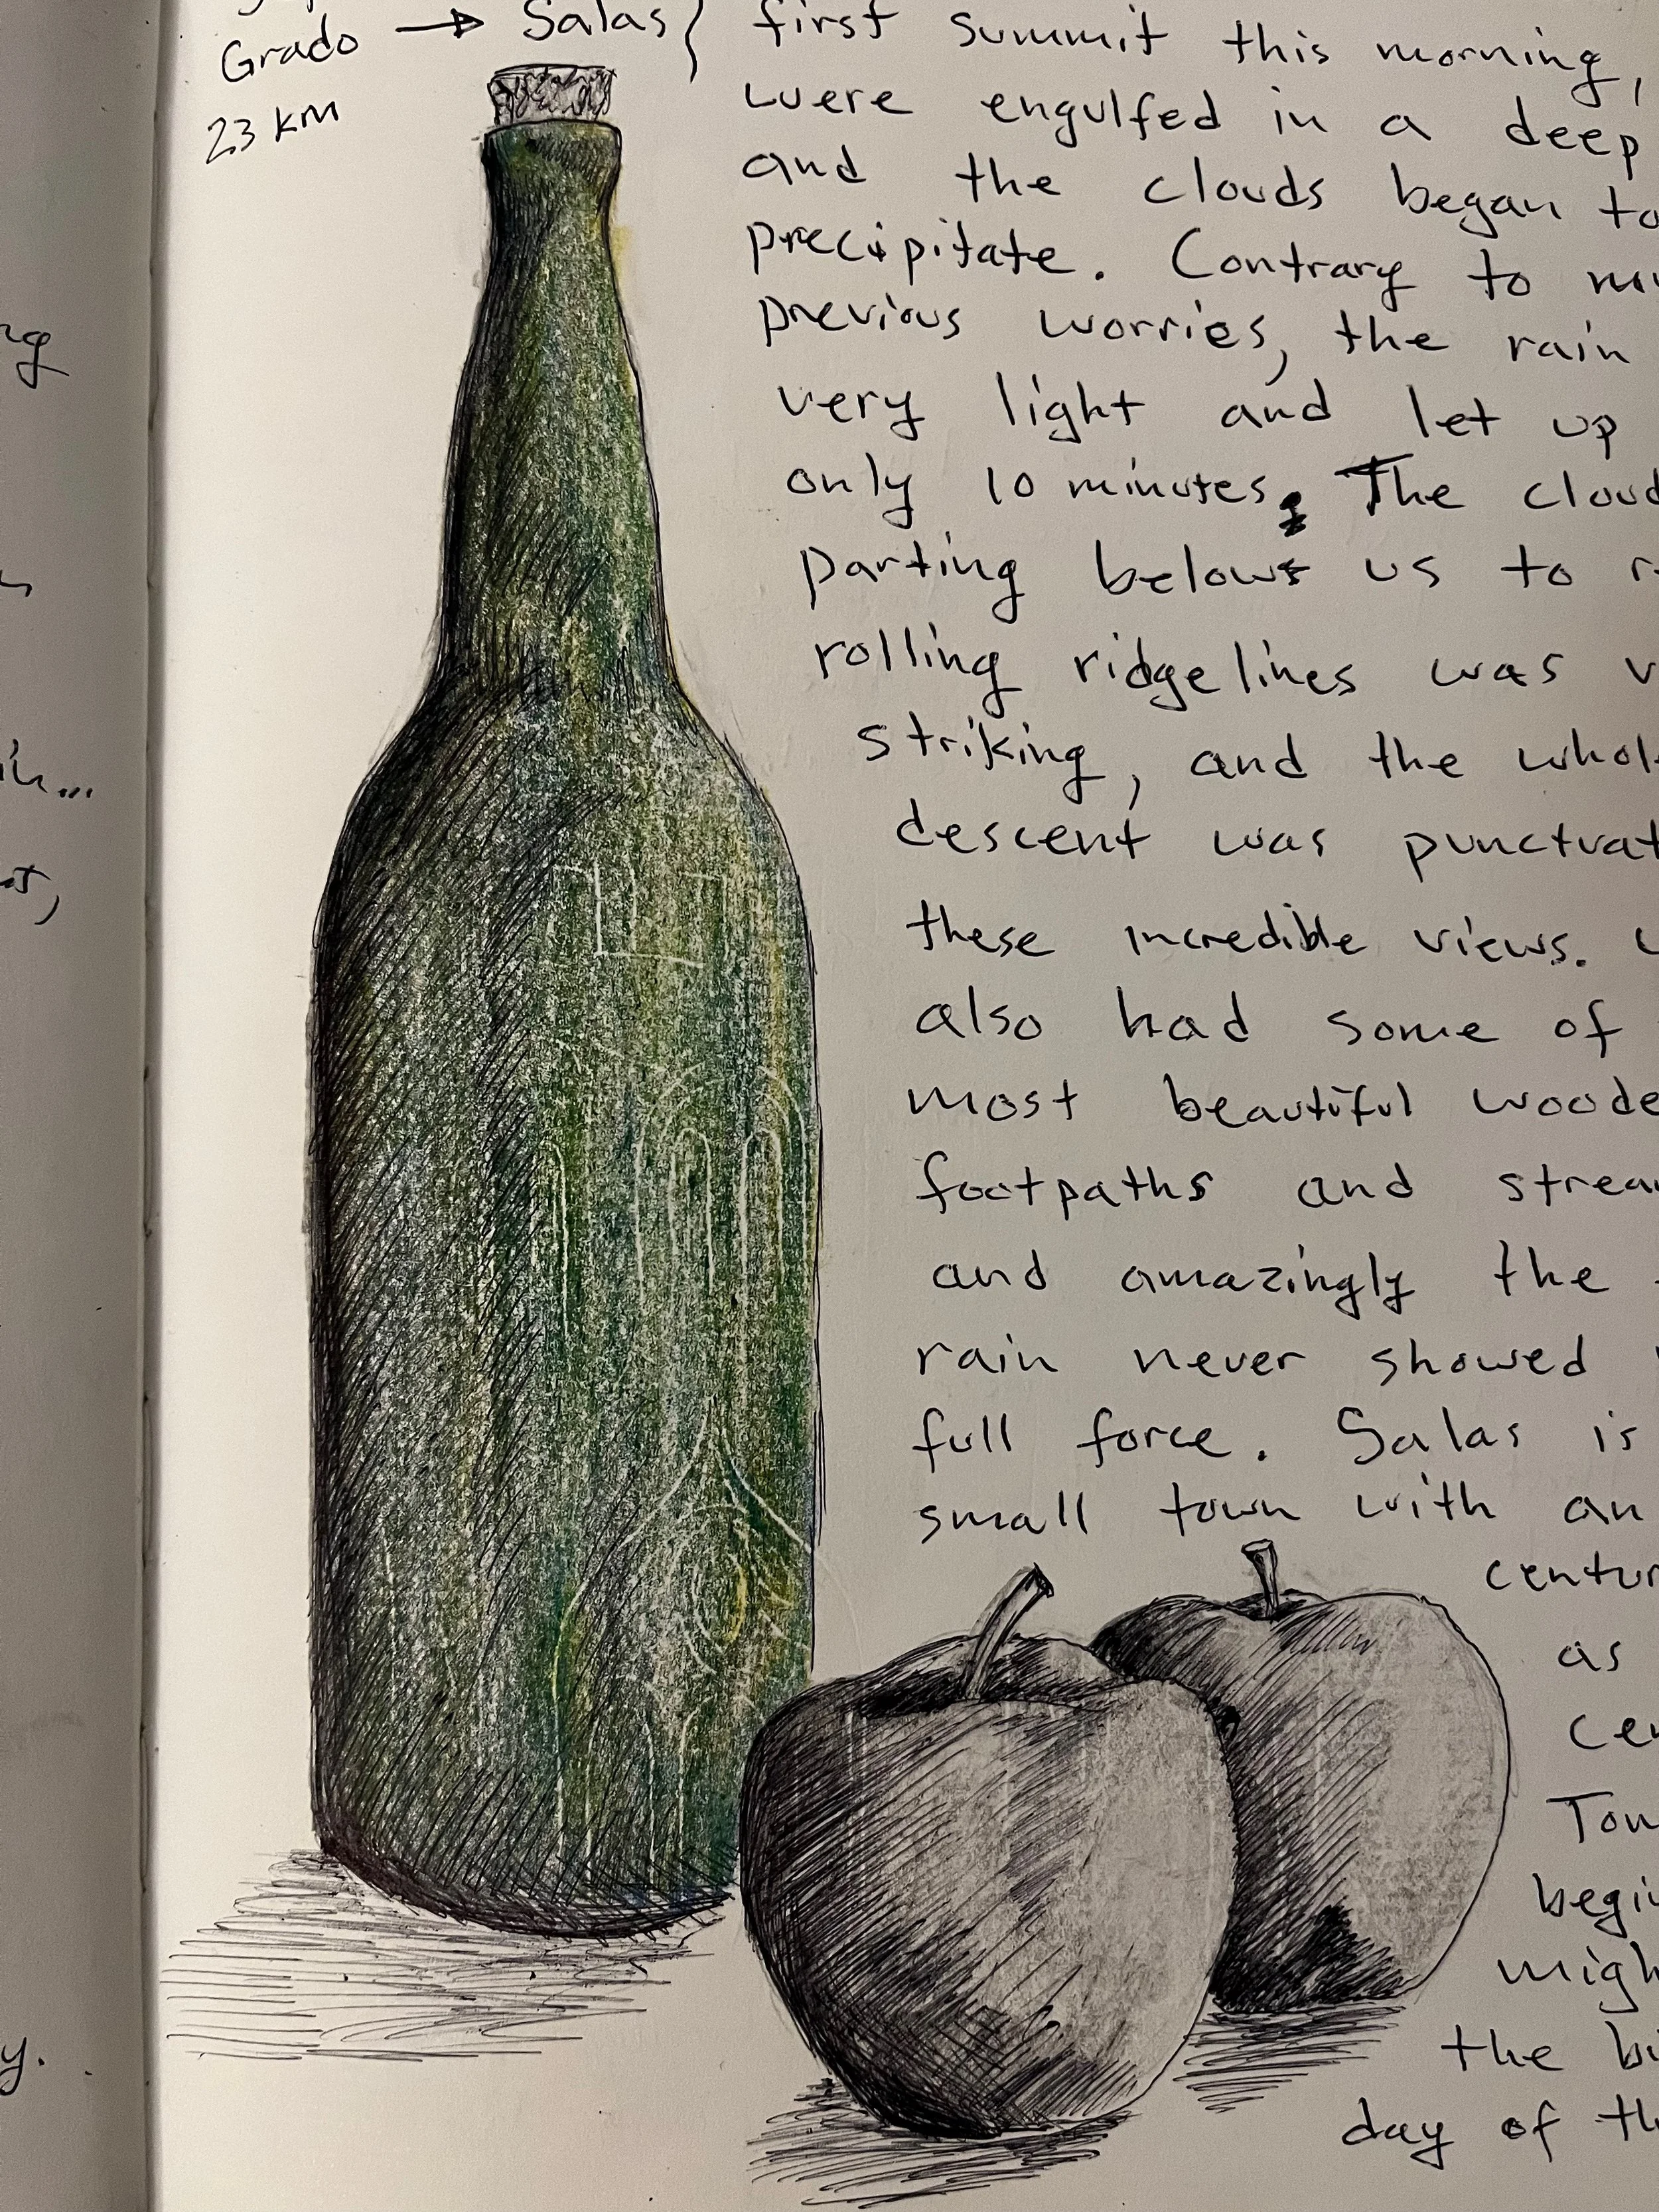 Grado → Salas
23 km
first summit this morning,
were engulfed in a deep
and the clouds began to
precipitate. Contrary to
previous worries, the rain
very light and let up
only 10 minutes. The
parting below us to
rolling ridgelines was
striking, and the
descent was
these incredible views.
also had some of
most beautiful
footpaths and
and amazingly the
rain never showed
full force. Salas is
small town with an
as
the
day of